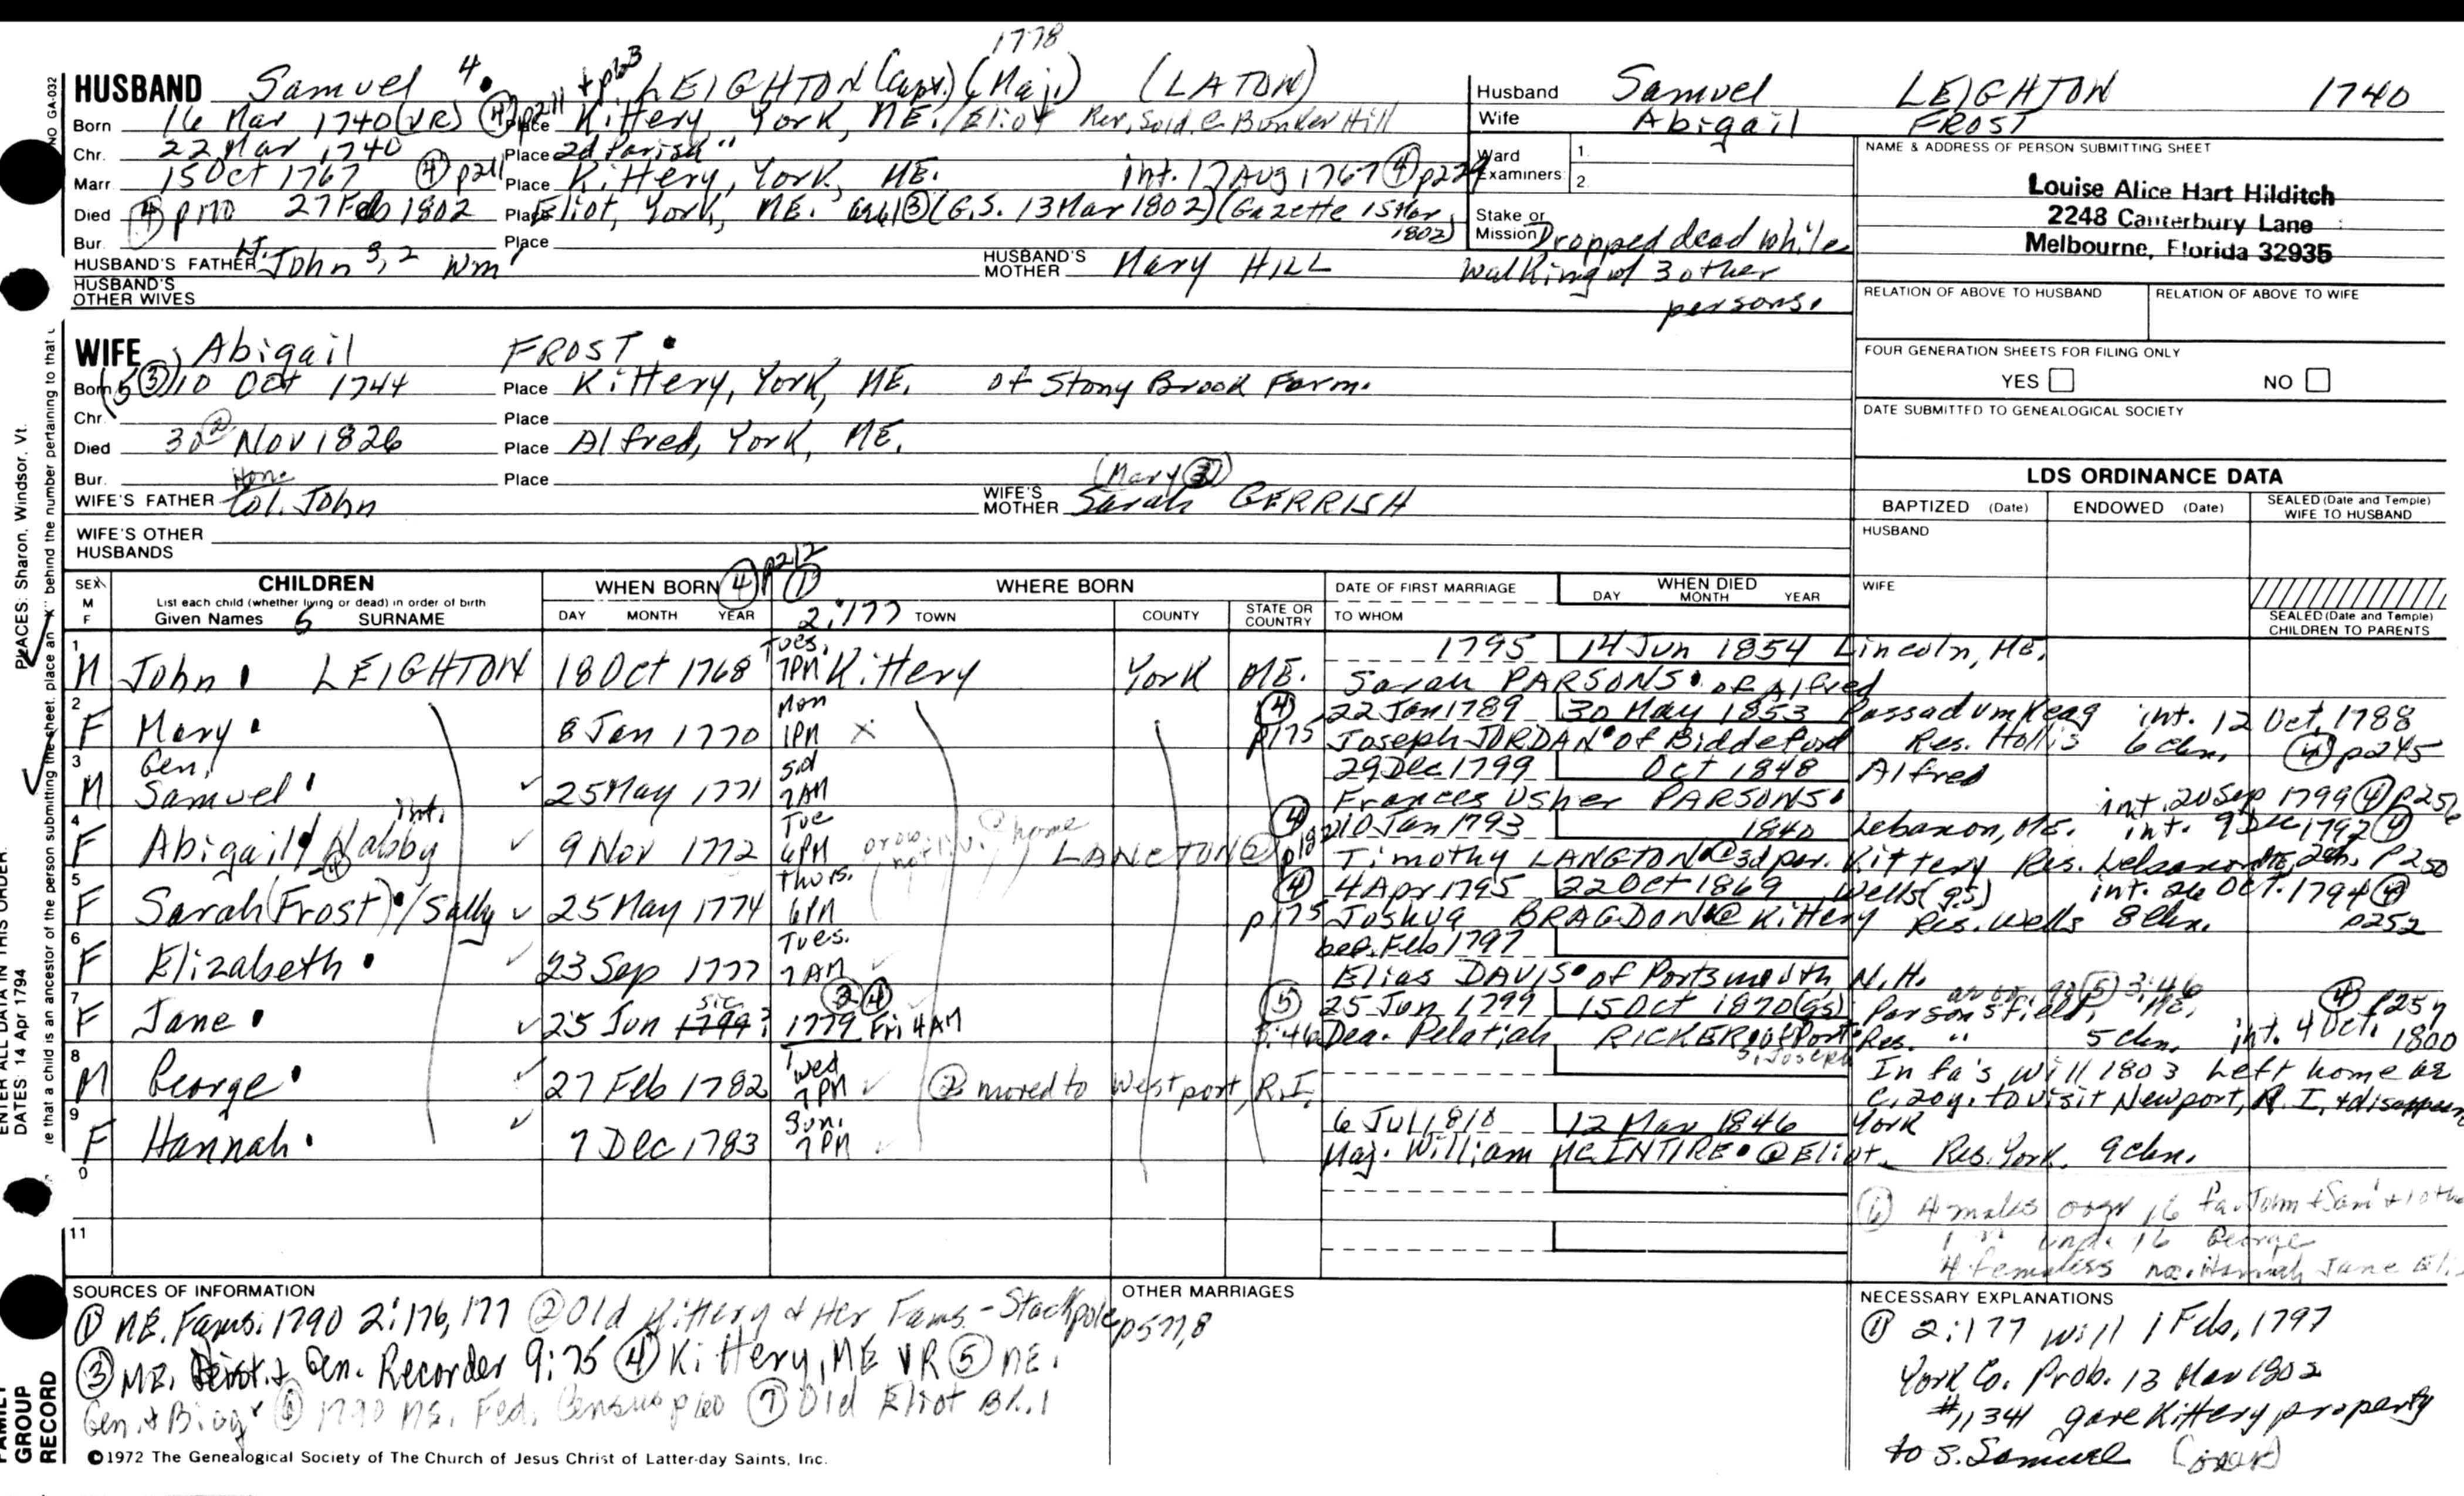 1778
HUSBAND Samuel 4. LEIGHTON (Capt.) (Maj.) (LATON)
Born 16 Mar 1740 (VR) ④ p211 Place Kittery, York, ME. / Eliot Rev. Sold. @ Bunker Hill
Chr. 22 Mar 1740 Place 2d Parish "
Marr. 15 Oct 1767 ④ p211 Place Kittery, York, ME. int. 17 Aug 1767 ④ p229
Died ④ p170 27 Feb 1802 Place Eliot, York, ME. ③ (G.S. 13 Mar 1802) (Gazette 15 Mar 1802)
Bur. Place
HUSBAND'S FATHER Lt. John 3, 2 Wm HUSBAND'S MOTHER Mary HILL
HUSBAND'S OTHER WIVES
Husband Samuel LEIGHTON 1740
Wife Abigail FROST
Ward Examiners 1. 2.
Stake or Mission
Dropped dead while
walking w/ 3 other
persons.
NAME & ADDRESS OF PERSON SUBMITTING SHEET
Louise Alice Hart Hilditch
2248 Canterbury Lane
Melbourne, Florida 32935
RELATION OF ABOVE TO HUSBAND RELATION OF ABOVE TO WIFE
FOUR GENERATION SHEETS FOR FILING ONLY
YES NO
DATE SUBMITTED TO GENEALOGICAL SOCIETY
WIFE Abigail FROST
Born (5 ③) 10 Oct 1744 Place Kittery, York, ME. of Stony Brook Farm.
Chr. Place
Died 30 ② Nov 1826 Place Alfred, York, ME.
Bur. Place
WIFE'S FATHER Hone Col. John WIFE'S MOTHER (Mary ③) Sarah GERRISH
WIFE'S OTHER HUSBANDS
LDS ORDINANCE DATA
BAPTIZED (Date) ENDOWED (Date) SEALED (Date and Temple) WIFE TO HUSBAND
HUSBAND
WIFE
SEALED (Date and Temple) CHILDREN TO PARENTS
SEX M F CHILDREN WHEN BORN ④ p212 ① 2:177 WHERE BORN DATE OF FIRST MARRIAGE WHEN DIED
List each child (whether living or dead) in order of birth
Given Names 5 SURNAME DAY MONTH YEAR TOWN COUNTY STATE OR COUNTRY TO WHOM DAY MONTH YEAR
1 M John LEIGHTON 18 Oct 1768 Tues. 7PM Kittery York ME. 1795 14 Jun 1854 Lincoln, ME.
Sarah PARSONS of Alfred
2 F Mary 8 Jan 1770 Mon 1PM X ④ p175 22 Jan 1789 30 May 1853 Passadumkeag int. 12 Oct, 1788
Joseph JORDAN of Biddeford Res. Hollis 6 chn. ④ p245
3 M Gen. Samuel 25 May 1771 Sat 7AM 29 Dec 1799 Oct 1848 Alfred
Frances Usher PARSONS int. 20 Sep 1799 ④ p256
4 F Abigail / Nabby int. ④ 9 Nov 1772 Tue 6PM LANGTON ④ 10 Jan 1793 1840 Lebanon, ME. int. 9 Dec 1792 ④
Timothy LANGTON @ 3d par. Kittery Res. Lebanon ME, 2ch. p250
5 F Sarah (Frost) / Sally 25 May 1774 Thurs. 6PM ④ p175 4 Apr 1795 22 Oct 1869 Wells (gs) int. 26 Oct. 1794 ④
Joshua BRAGDON @ Kittery Res. Wells 8 chn. p252
6 F Elizabeth 23 Sep 1777 Tues. 7AM bef. Feb 1797
Elias DAVIS of Portsmouth N.H.
7 F Jane 25 Jun 1799? sic ② ④ 1779 Fri 4AM ⑤ 3:46 25 Jan 1799 15 Oct 1870 (gs) Parsonsfield, ME. ④ p257
Dea. Pelatiah RICKER Res. " 5 chn. int. 4 Oct. 1800
8 M George 27 Feb 1782 Wed 7PM ② moved to Westport, R.I. s. Joseph In fa's will 1803 Left home as
c. 20y. to visit Newport, R.I. & disappear
9 F Hannah 7 Dec 1783 Sun. 7PM 6 Jul 1810 12 Mar 1846 York
Maj. William McINTIRE @ Eliot. Res. York. 9 chn.
0
11
⑥ 4 males over 16 fa. John & Sam &
1 " under 16 George
4 females Hannah Jane
SOURCES OF INFORMATION
① ME. Fams. 1790 2:176,177 ② Old Kittery & Her Fams. - Stackpole p577,8
③ ME. Hist. & Gen. Recorder 9:75 ④ Kittery, ME VR ⑤ ME.
Gen. & Biog ⑥ 1790 ME. Fed. Census p60 ⑦ Old Eliot Bk. 1
OTHER MARRIAGES
NECESSARY EXPLANATIONS
① 2:177 will 1 Feb, 1797
York Co. Prob. 13 Mar 1802
#11341 gave Kittery property
to s. Samuel (over)
©1972 The Genealogical Society of The Church of Jesus Christ of Latter-day Saints, Inc.
NO GA-032
PLACES: Sharon, Windsor, Vt.
ENTER ALL DATA IN THIS ORDER:
DATES: 14 Apr 1794
that a child is an ancestor of the person submitting the sheet, place an "X" behind the number pertaining to that
FAMILY GROUP RECORD